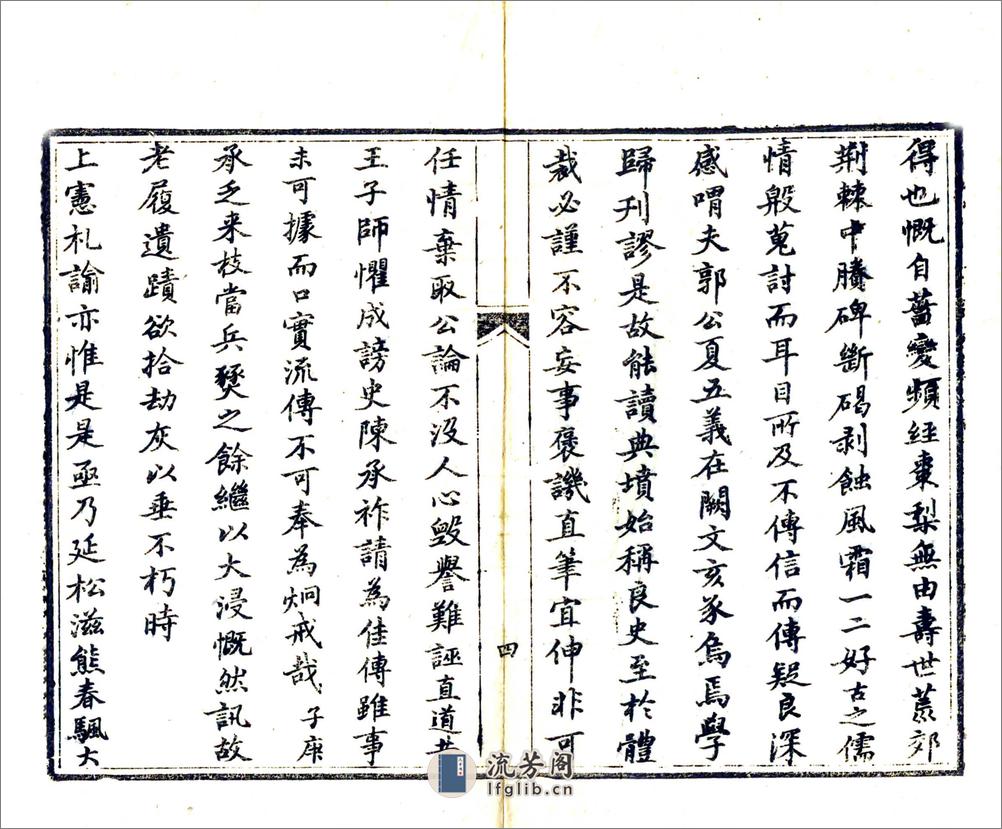 得也慨自舊變頻經棗梨無由壽世荒郊
荆棘中賸碑斷碣剥蝕風霜一二好古之儒
情殷蒐討而耳目所及不傳信而傳疑良深
感喟夫郭公夏五義在闕文亥豕烏焉學
歸刊謬是故能讀典墳始稱良史至於體
裁必謹不容妄事褒譏直筆宜伸非可
四
任情棄取公論不没人心毁譽難誣直道
王子師懼成謗史陳承祚請為佳傳雖事
未可據而口實流傳不可奉為炯戒哉子庚
承乏来枝當兵燹之餘繼以大浸慨然訊故
老履遺蹟欲拾劫灰以垂不朽時
上憲札諭亦惟是是亟乃延松滋熊春颿大
流芳阁
lfglib.cn